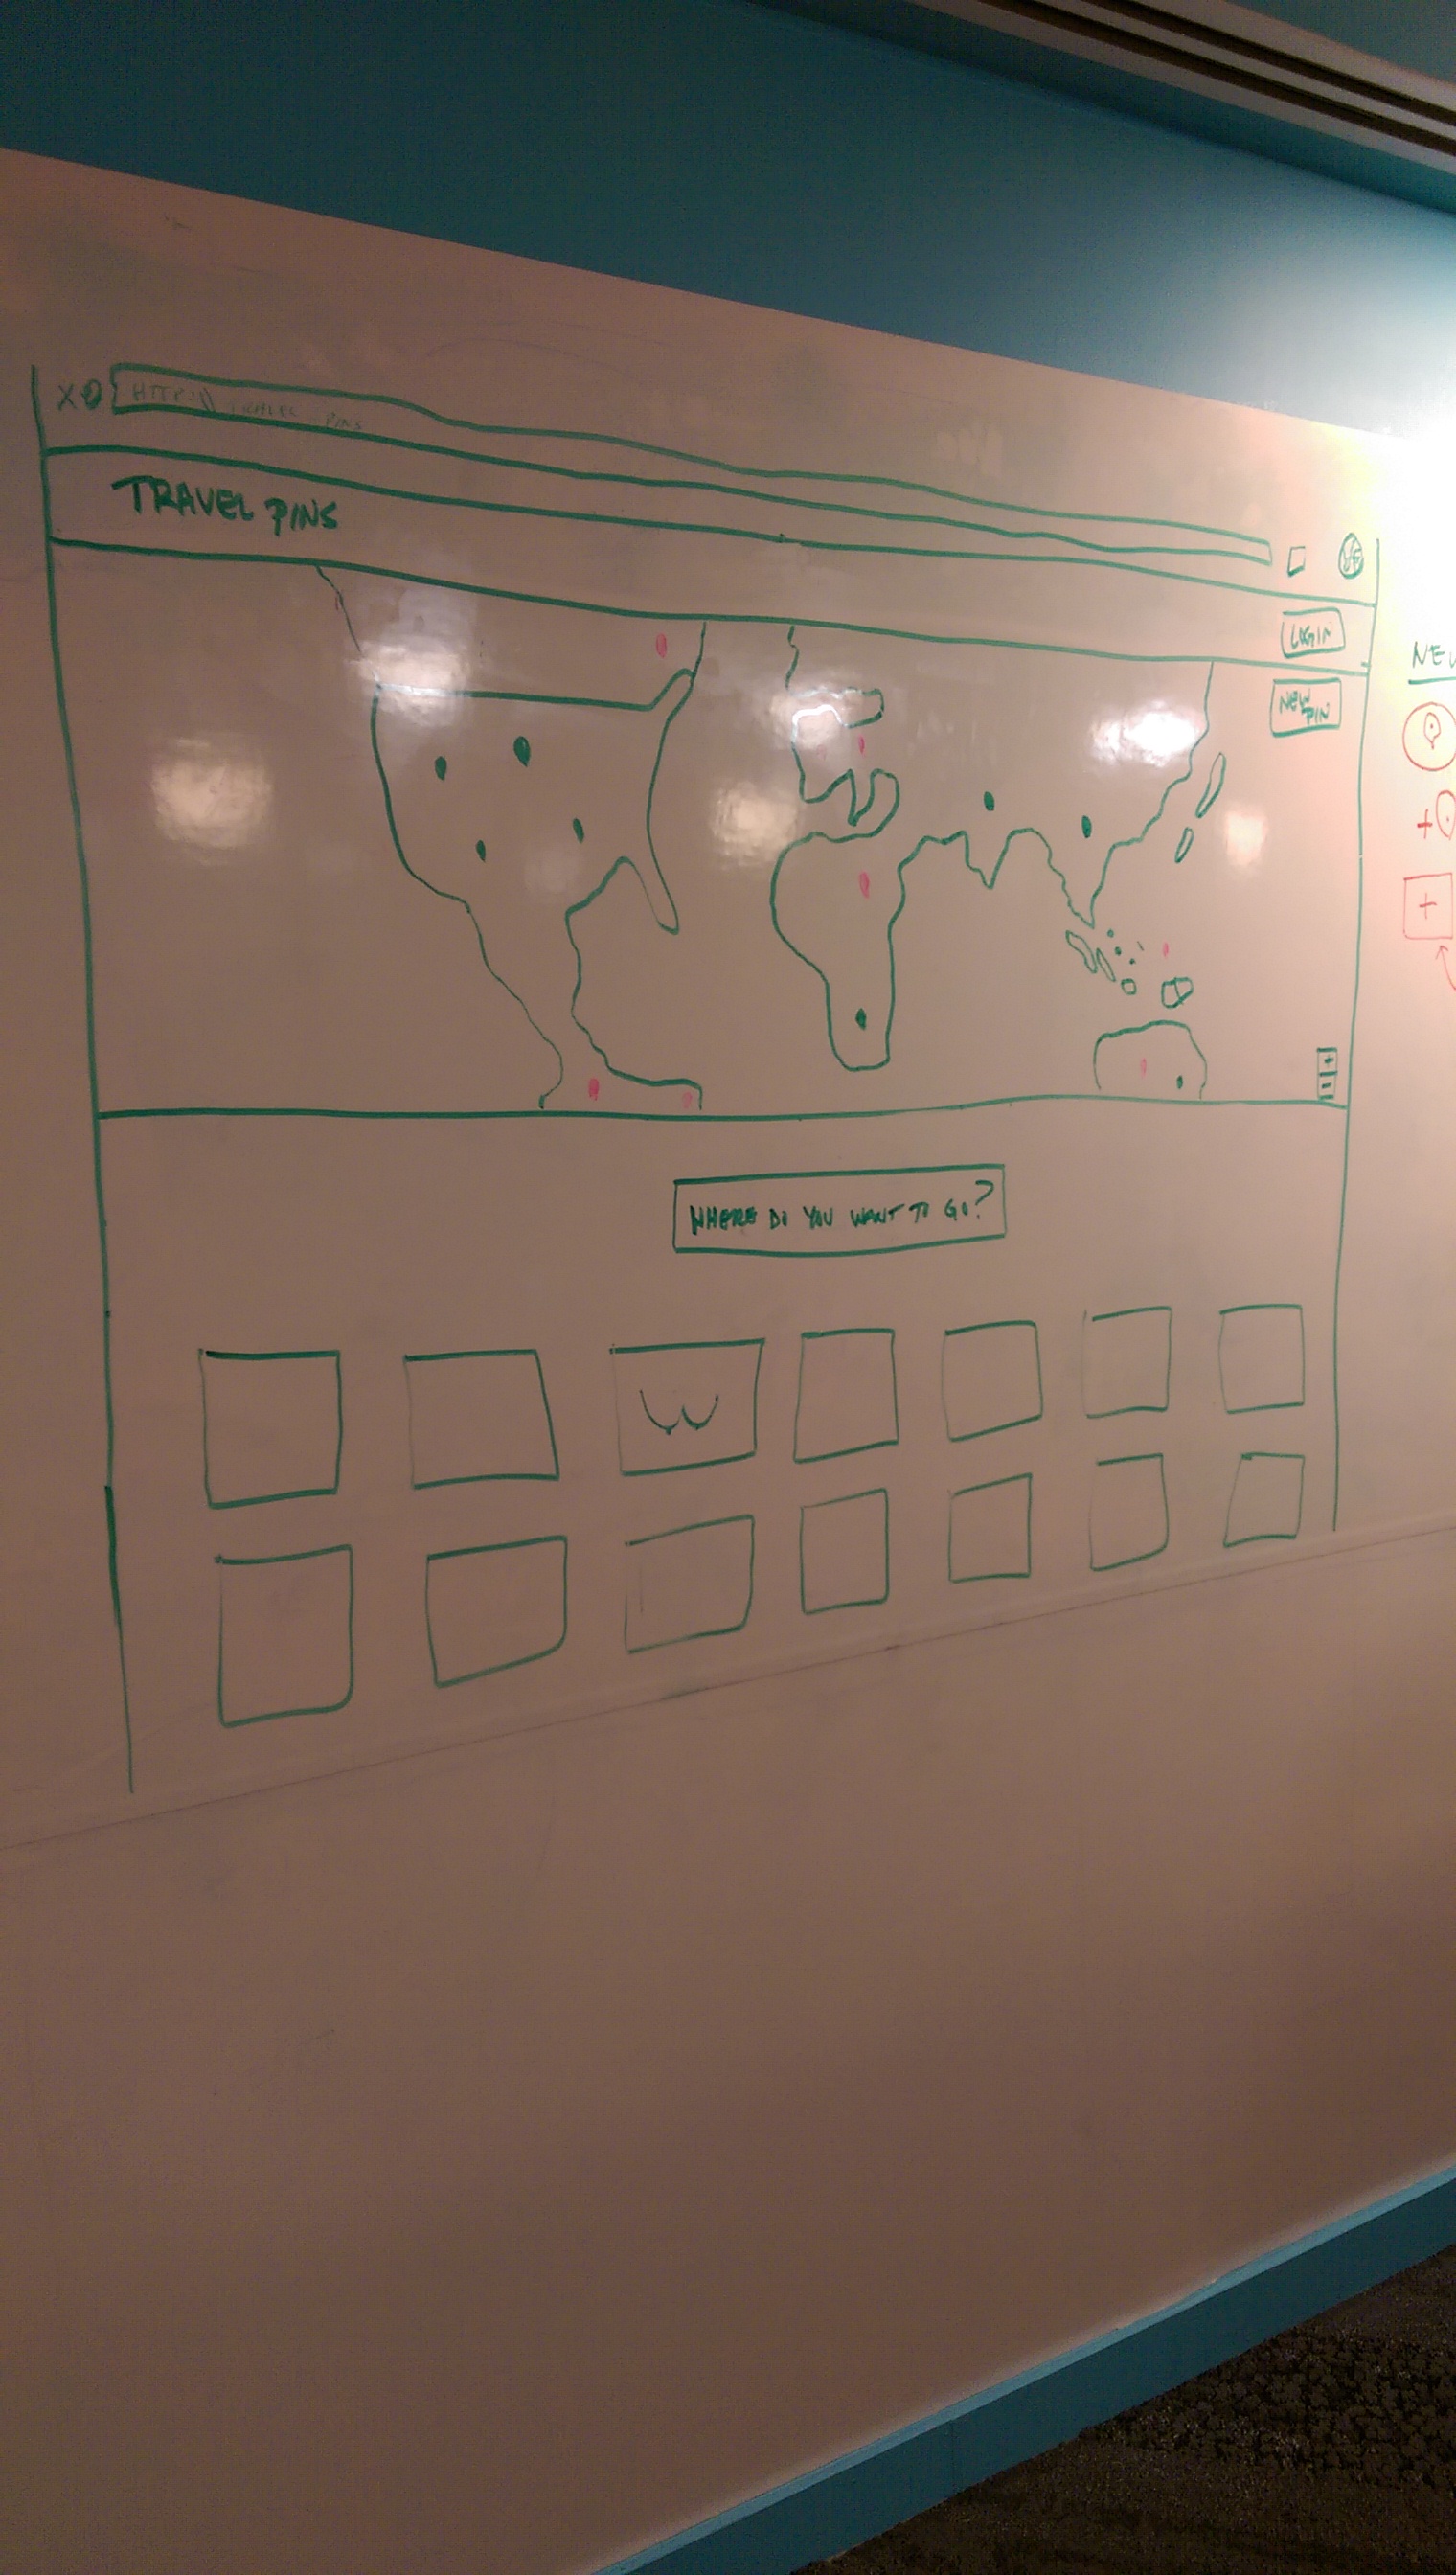 X
HTTP:\\ TRAVEL-PINS
TRAVEL PINS
LOGIN
NEW
PIN
+
-
WHERE DO YOU WANT TO GO?
+
+